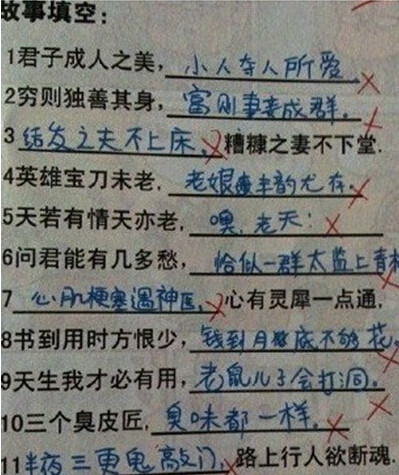 故事填空:
1君子成人之美, 小人夺人所爱
2穷则独善其身, 富则妻妾成群。
3 结发之夫不上床, 糟糠之妻不下堂.
4英雄宝刀未老, 老娘丰韵尤存。
5天若有情天亦老, 噢,老天!
6问君能有几多愁, 恰似一群太监上青楼
7 心肌梗塞遇神医, 心有灵犀一点通.
8书到用时方恨少, 钱到月底不够花。
9天生我才必有用, 老鼠儿子会打洞。
10三个臭皮匠, 臭味都一样。
11半夜三更鬼敲门, 路上行人欲断魂.